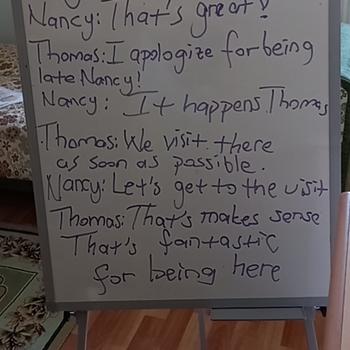 Nancy: That's great!
Thomas: I apologize for being
late Nancy!
Nancy: It happens Thomas
Thomas: We visit there
as soon as possible.
Nancy: Let's get to the visit
Thomas: That's makes sense
That's fantastic
for being here